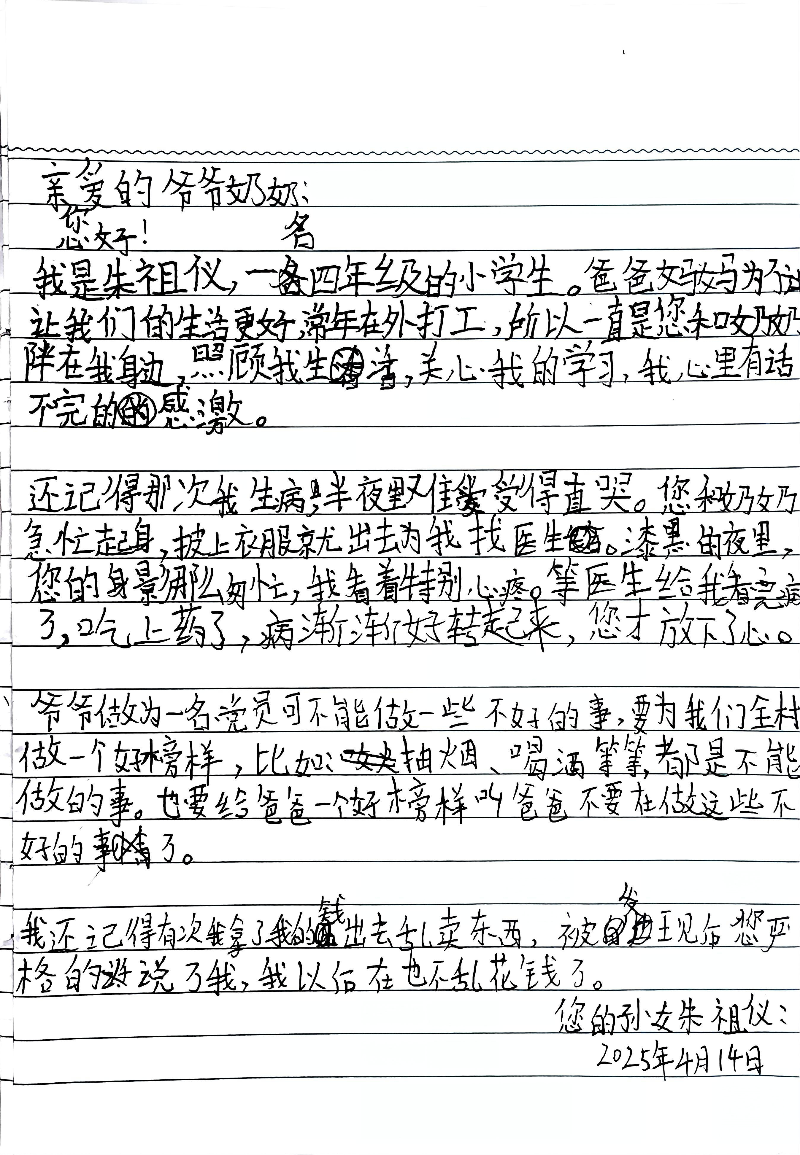 亲爱的爷爷奶奶：
您好！
我是朱祖仪，一名四年级的小学生。爸爸妈妈为了
让我们的生活更好，常年在外打工，所以一直是您和奶奶
陪在我身边，照顾我生活，关心我的学习，我心里有话
不完的感激。
还记得那次我生病，半夜难受得直哭。您和奶奶
急忙起身，披上衣服就出去为我找医生。漆黑的夜里，
您的身影那么匆忙，我看着特别心疼。等医生给我看完病
了，吃上药了，病渐渐好转起来，您才放下了心。
爷爷做为一名党员可不能做一些不好的事，要为我们全村
做一个好榜样，比如：抽烟、喝酒等等，都是不能
做的事。也要给爸爸一个好榜样叫爸爸不要在做这些不
好的事了。
我还记得有次我拿了我的钱出去乱卖东西，被发现后您严
格的说了我，我以后在也不乱花钱了。
您的孙女朱祖仪：
2025年4月14日